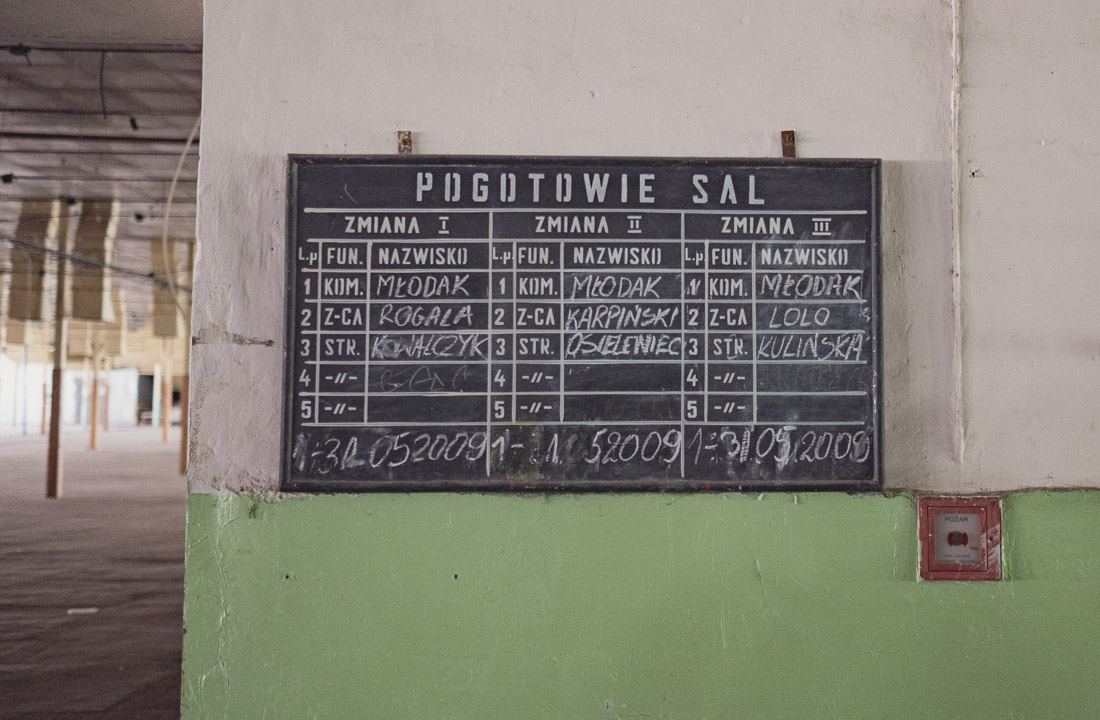 POGOTOWIE SAL
ZMIANA I ZMIANA II ZMIANA III
L.p FUN. NAZWISKO L.p FUN. NAZWISKO L.p FUN. NAZWISKO
1 KOM. MŁODAK 1 KOM. MŁODAK 1 KOM. MŁODAK
2 Z-CA ROGALA 2 Z-CA KARPIŃSKI 2 Z-CA LOLO
3 STR. KOWALCZYK 3 STR. OSIELENIEC 3 STR. KULIŃSKA
4 -//- 4 -//- 4 -//-
5 -//- 5 -//- 5 -//-
1-31.052009 1- 1. 52009 1-31.05.2009
POŻAR